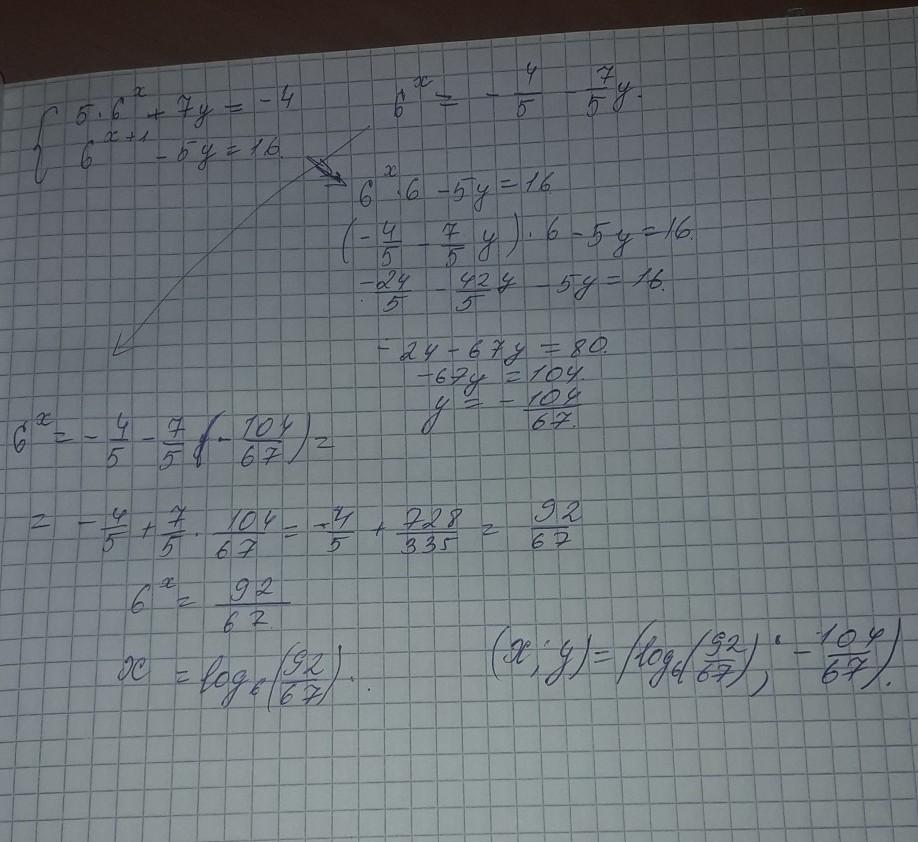 { 5·6^x + 7y = -4
6^{x+1} - 5y = 16.
6^x = - 4/5 - 7/5 y.
6^x·6 - 5y = 16
(- 4/5 - 7/5 y)·6 - 5y = 16.
-24/5 - 42/5 y - 5y = 16.
- 24 - 67y = 80.
-67y = 104.
y = - 104/67.
6^x = - 4/5 - 7/5 (- 104/67) =
= - 4/5 + 7/5 · 104/67 = - 4/5 + 728/335 = 92/67
6^x = 92/67.
x = log_6(92/67).
(x; y) = (log_6(92/67); - 104/67).